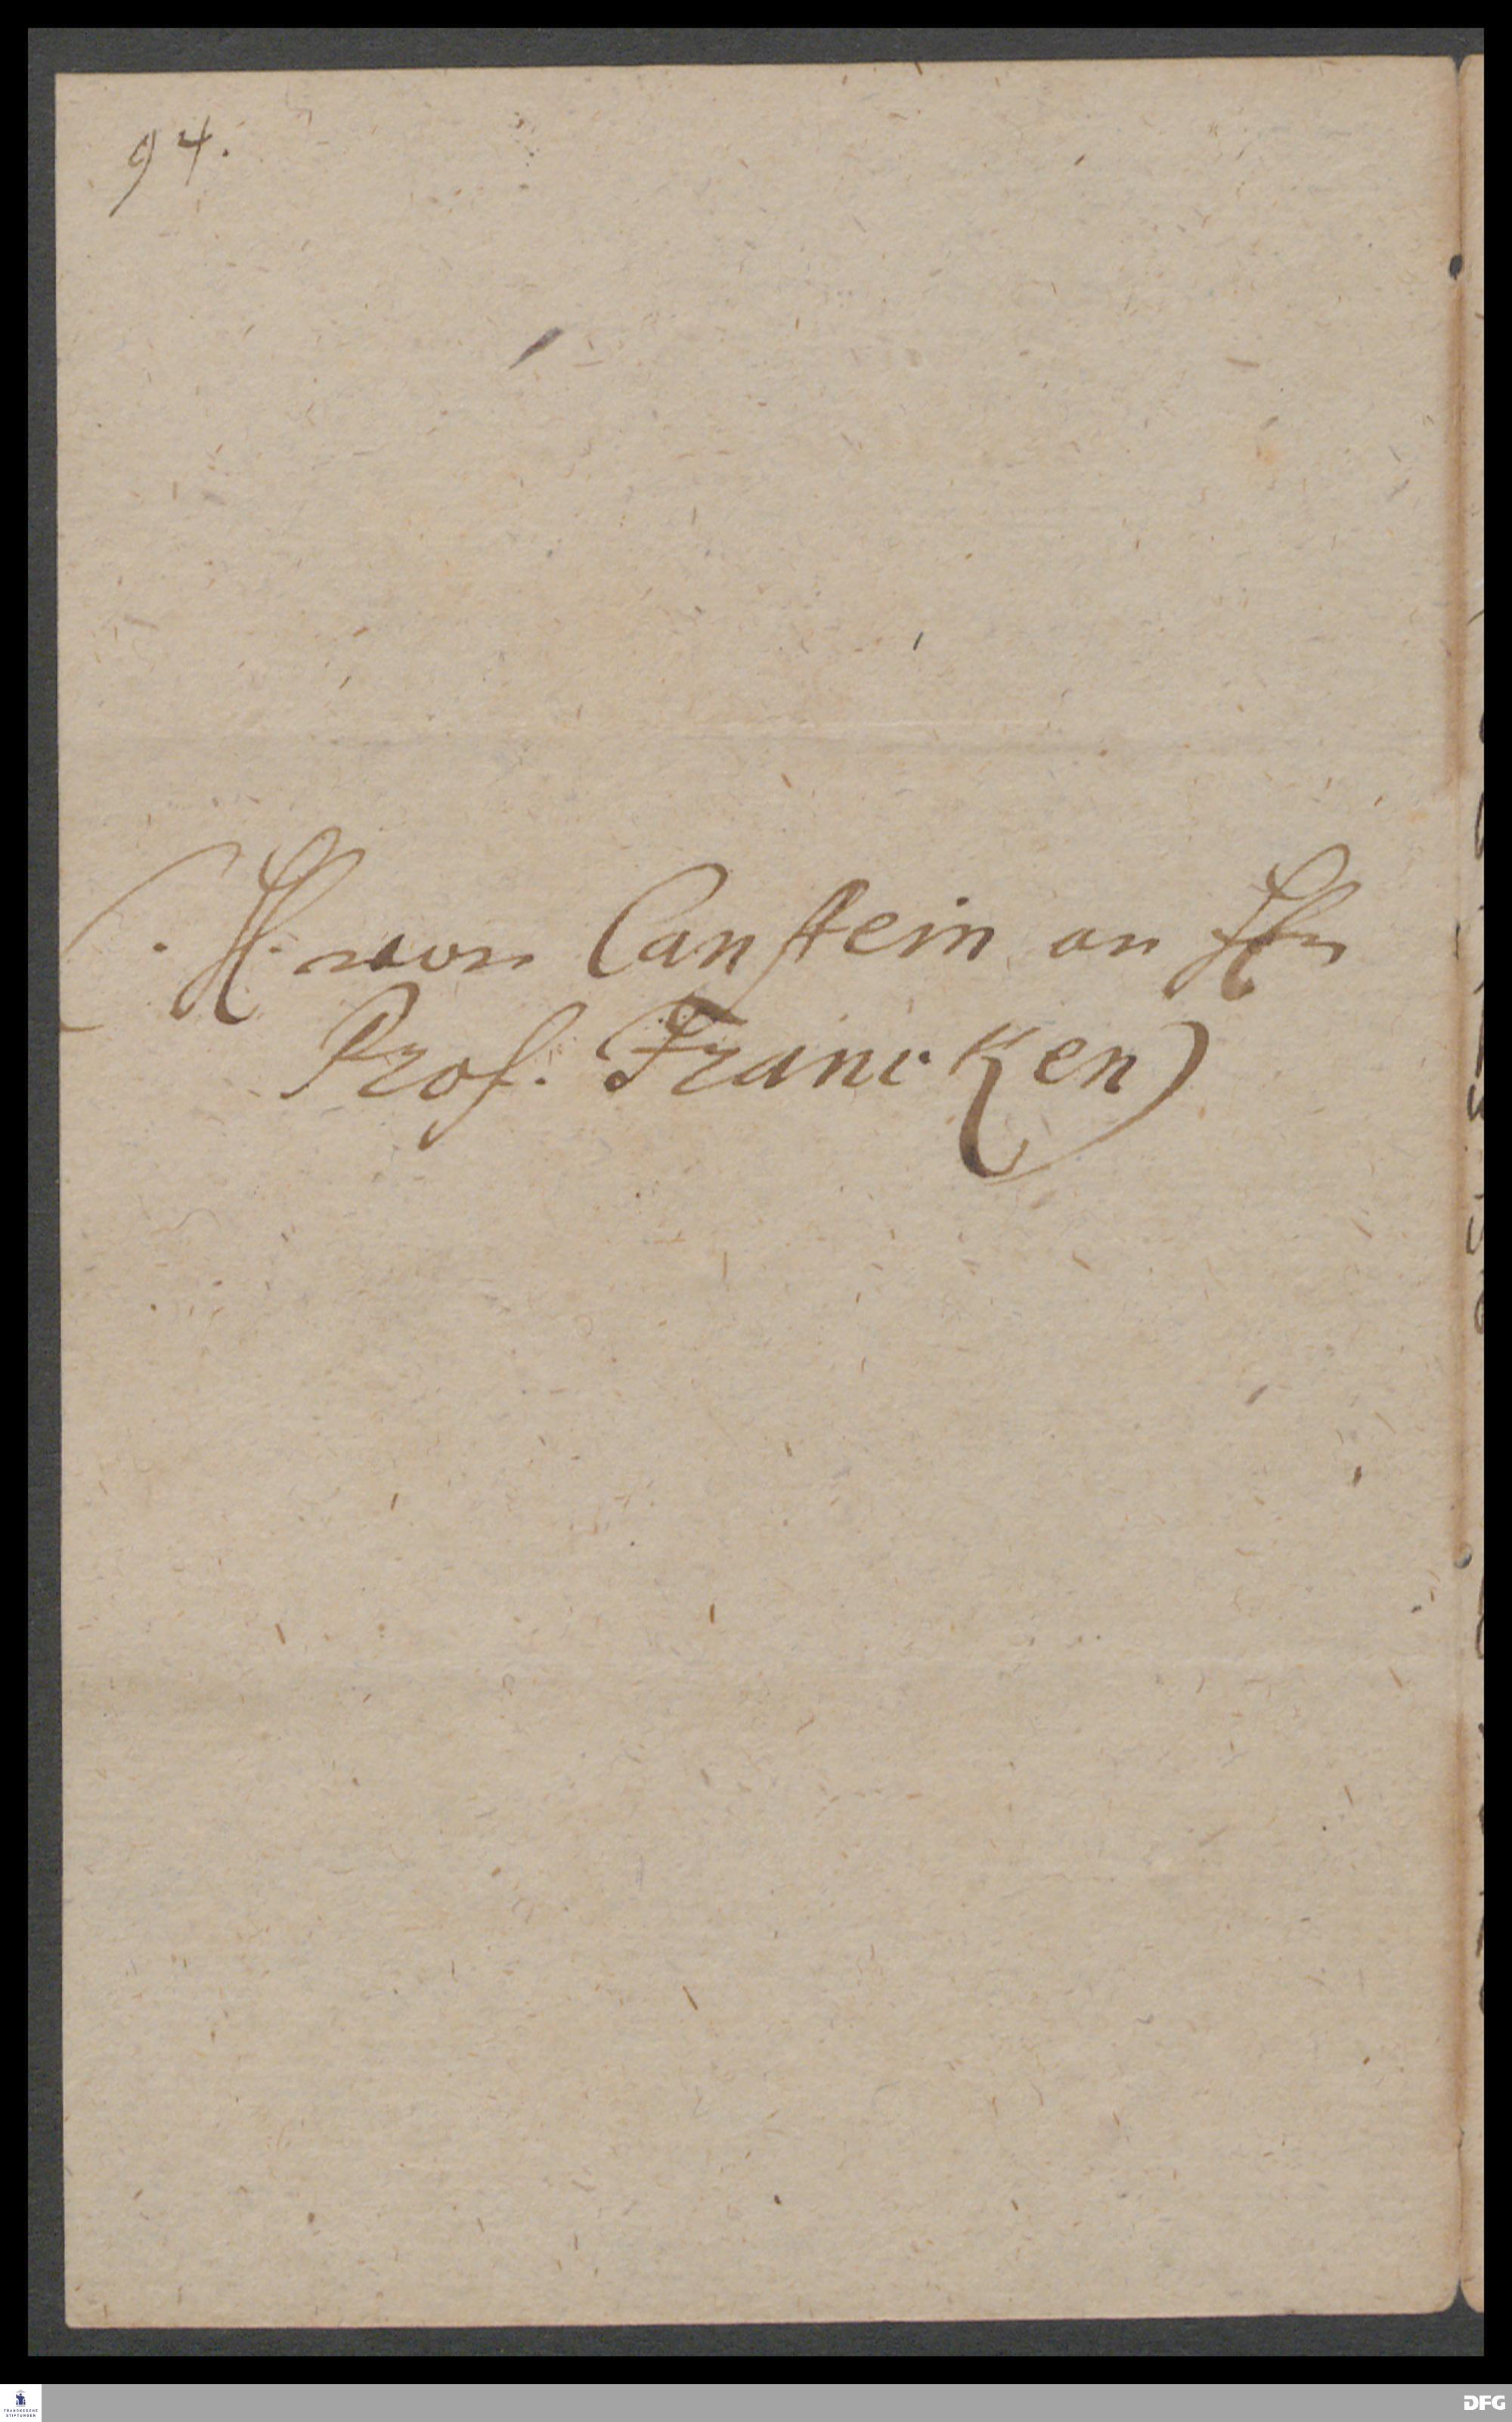 94.
(. H. von Canstein an Hn
Prof. Francken)
FRANCKESCHE
STIFTUNGEN
DFG